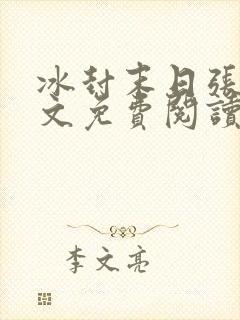 冰封末日張
文免費閱讀
李文亮